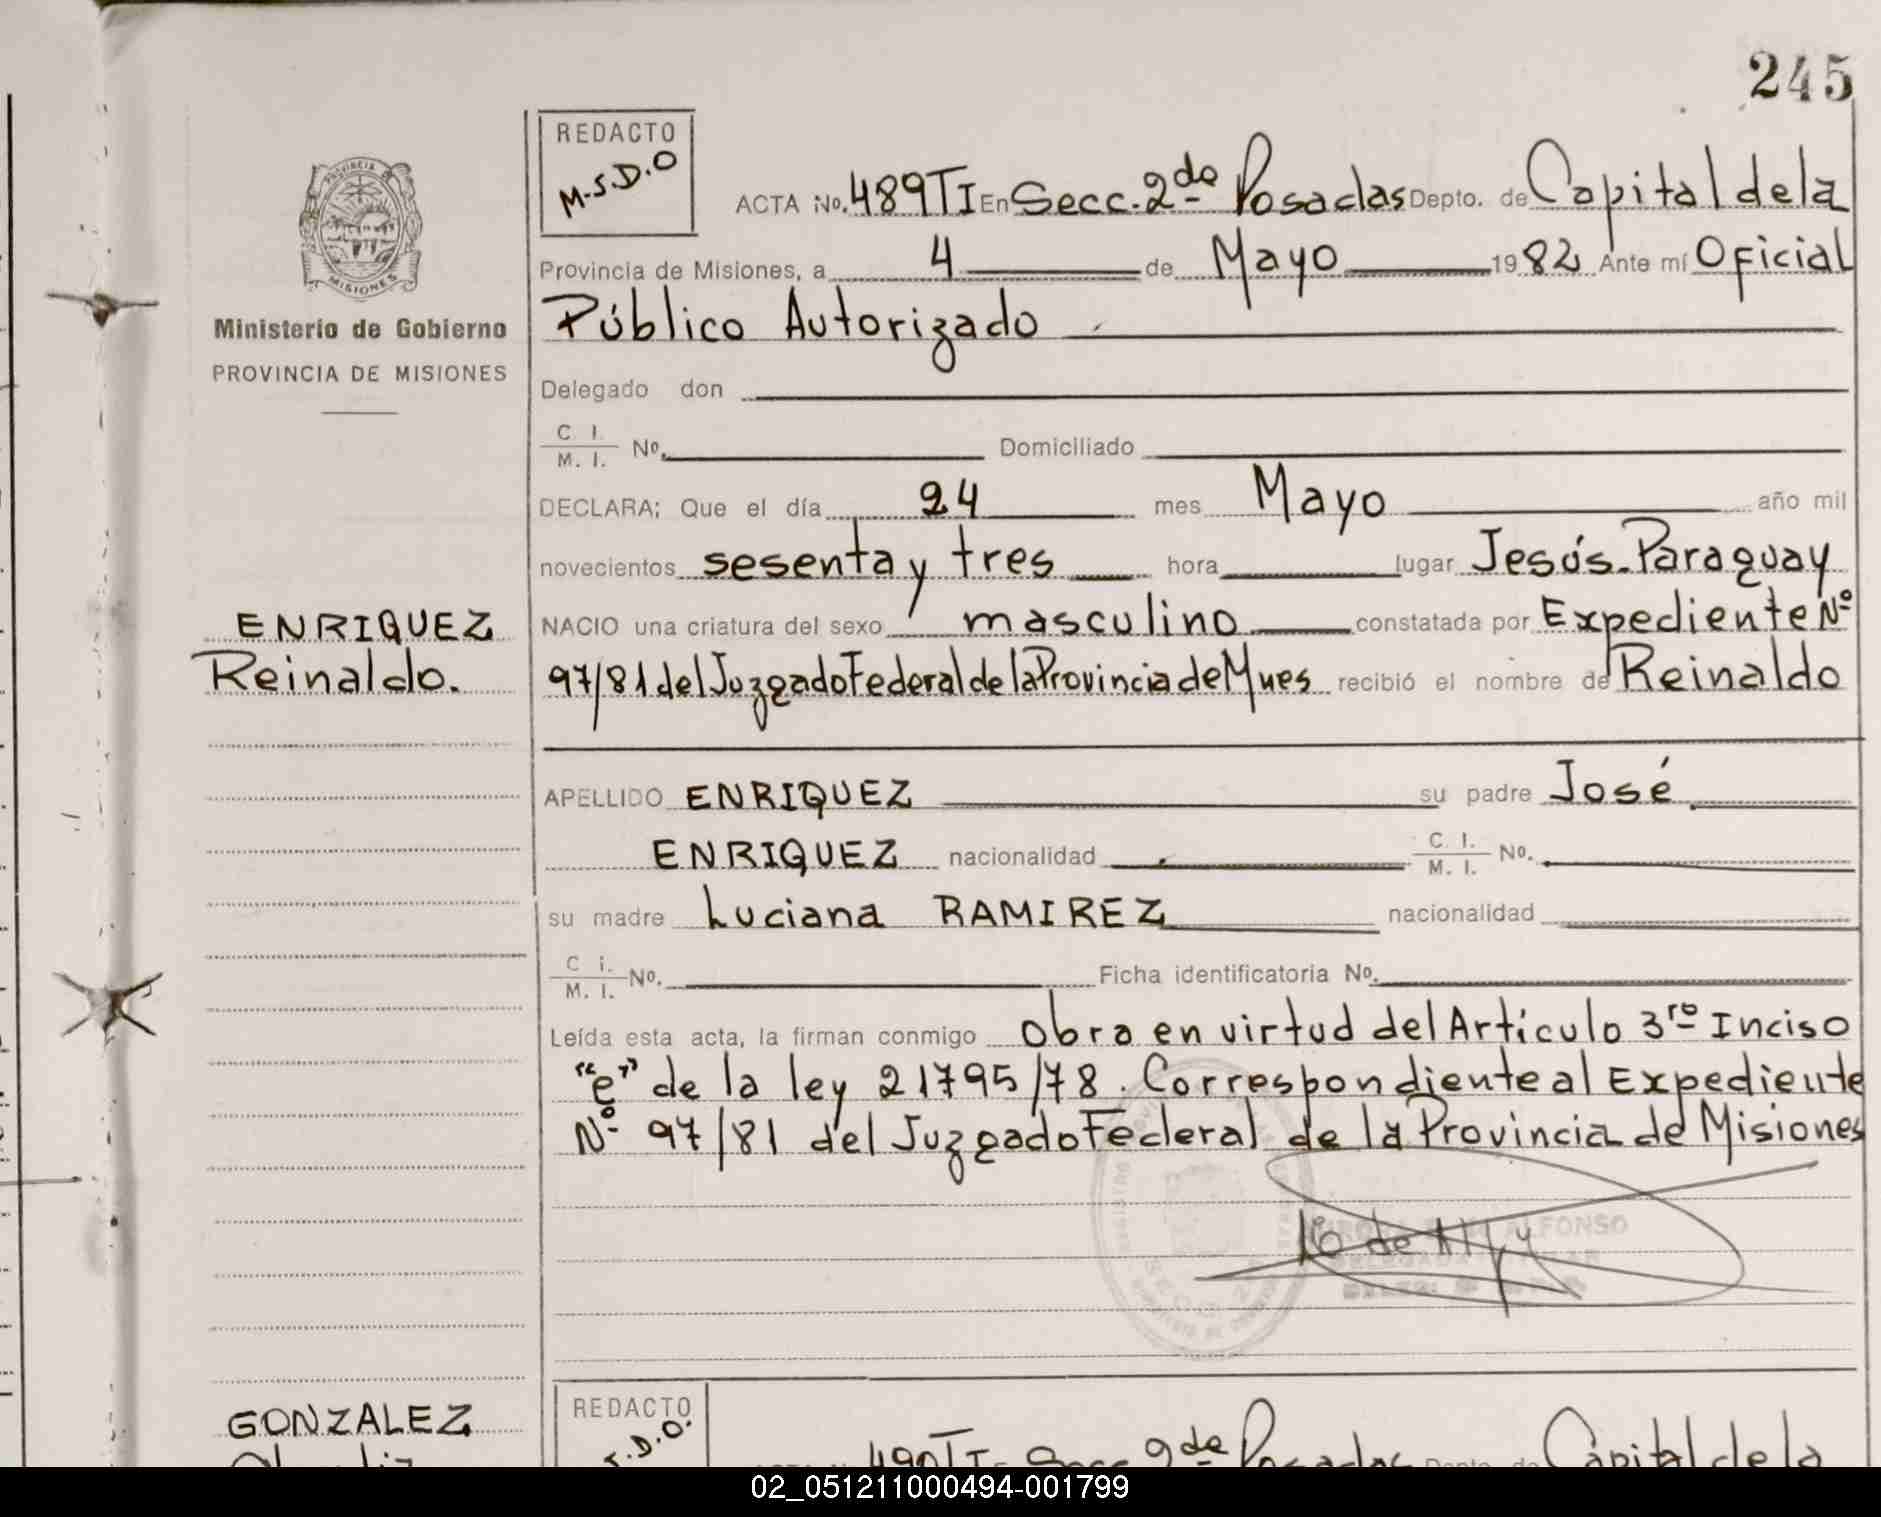 245
REDACTO
M.S.D.O
ACTA No. 489 TI En Secc. 2da Posadas Depto. de Capital de la
Provincia de Misiones, a 4 de Mayo 1982 Ante mí Oficial
Público Autorizado
Ministerio de Gobierno
PROVINCIA DE MISIONES
Delegado don
C. I.
M. I. No. Domiciliado
DECLARA; Que el día 24 mes Mayo año mil
novecientos sesenta y tres hora lugar Jesús-Paraguay
NACIO una criatura del sexo masculino constatada por Expediente Nº
97/81 del Juzgado Federal de la Provincia de Mnes recibió el nombre de Reinaldo
ENRIQUEZ
Reinaldo.
APELLIDO ENRIQUEZ su padre José
ENRIQUEZ nacionalidad C. I. M. I. No.
su madre Luciana RAMIREZ nacionalidad
C i. M. I. No. Ficha identificatoria No.
Leída esta acta, la firman conmigo Obra en virtud del Artículo 3ro Inciso
"e" de la ley 21795/78. Correspondiente al Expediente
Nº 97/81 del Juzgado Federal de la Provincia de Misiones
ALFONSO
GONZALEZ
REDACTO
S.D.O.
490 TI Secc. 2da Posadas Depto. de Capital de la
02_051211000494-001799